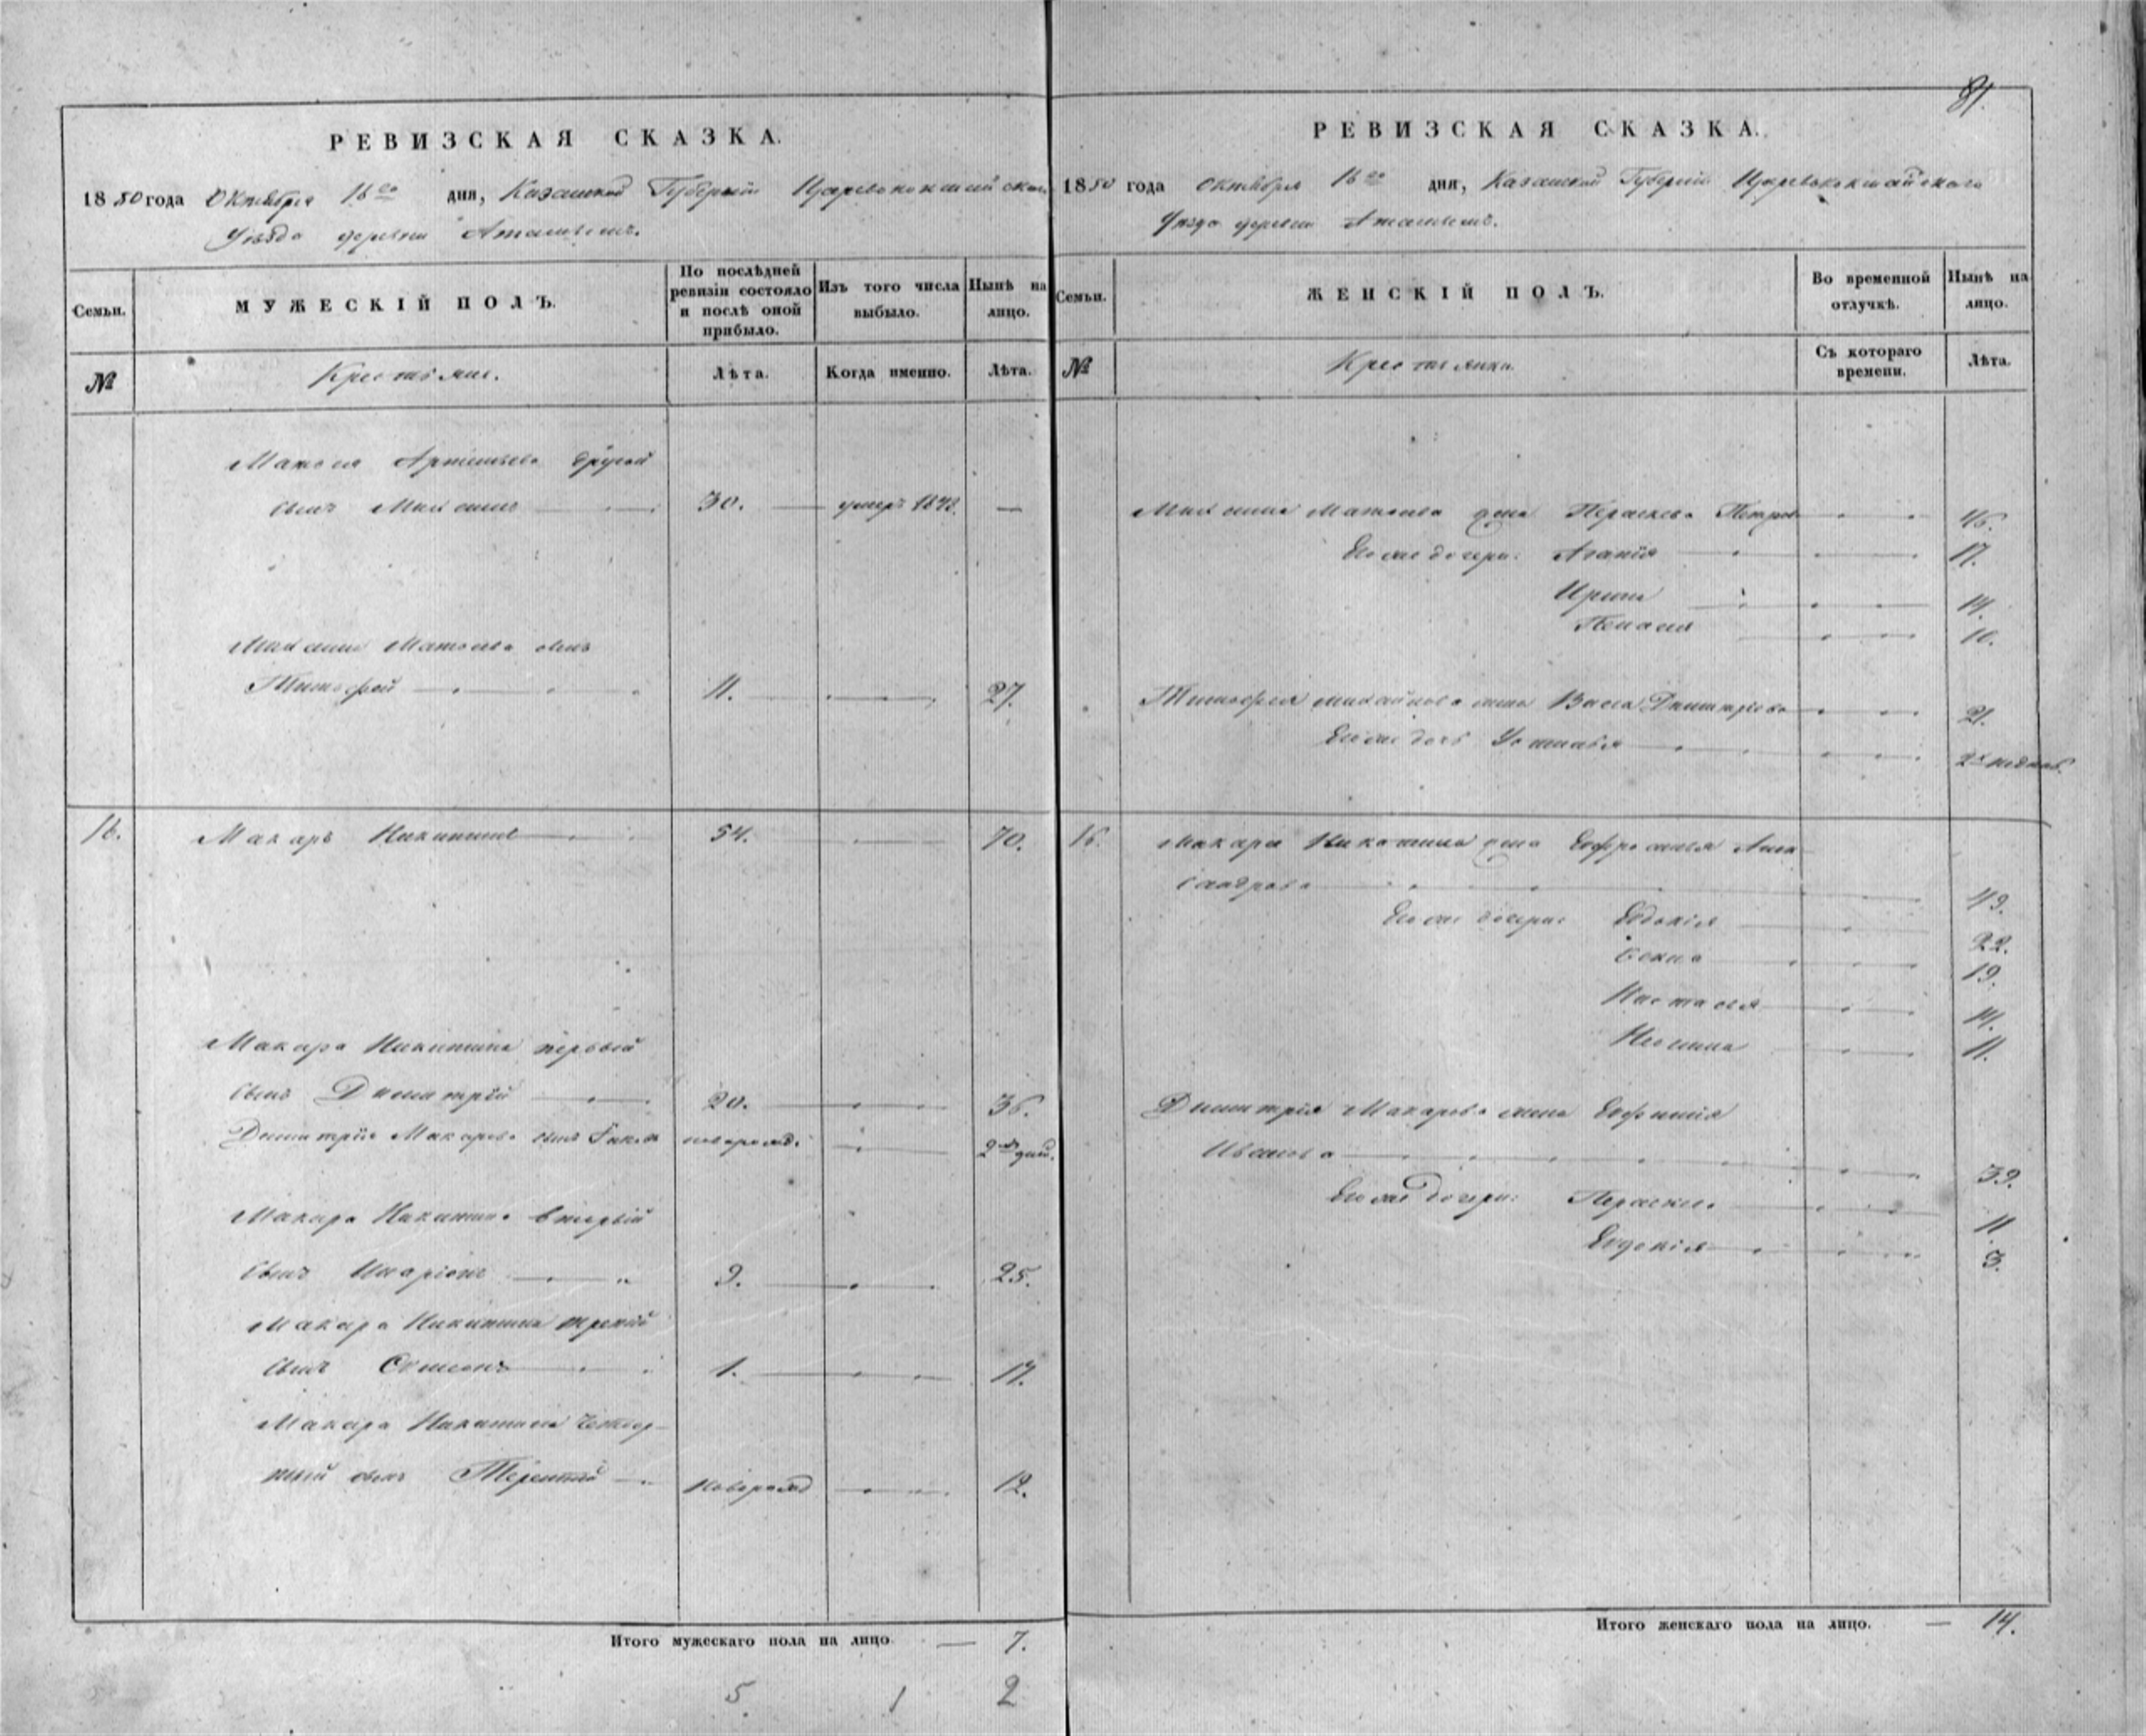 81.
РЕВИЗСКАЯ СКАЗКА.
1850 года Октября 16го дня, Казанской Губернии Царевококшайскаго
Уѣзда деревни
Семьи.
МУЖЕСКІЙ ПОЛЪ.
По послѣдней ревизіи состояло и послѣ оной прибыло.
Изъ того числа выбыло.
Нынѣ на лицо.
№
Крестьяне.
Лѣта.
Когда именно.
Лѣта.
другой
сынъ 30. — умеръ 1843. —
сынъ
Тимофей 11. 27.
16. Макаръ Никитинъ 54. 70.
Макара Никитина первый
сынъ Дмитрій 20. 36.
Дмитрія Макарова сынъ новорожд. 2хъ дней.
Макара Никитина вторый
сынъ Иларіонъ 9. 25.
Макара Никитина третій
сынъ Семенъ 1. 17.
Макара Никитина четвер-
тый сынъ Терентій новорожд 12.
Итого мужескаго пола на лицо — 7.
5 1 2
РЕВИЗСКАЯ СКАЗКА.
1850 года октября 16го дня, Казанской Губерніи Царевококшайскаго
Уѣзда деревни
Семьи.
ЖЕНСКІЙ ПОЛЪ.
Во временной отлучкѣ.
Нынѣ на лицо.
№
Крестьянки.
Съ котораго времени.
Лѣта.
жена Параскева Петрова 46.
Его же дочери: Агапія 17.
Ирина 14.
10.
Тимофея жена Васса Дмитріева 21.
Его же дочь Устинья
16. Макара Никитина жена Евфросинья Алек-
сандрова 49.
Его же дочери: Евдокія 22.
19.
Настасья 14.
11.
Дмитрія Макарова жена Евфимія
Иванова 39.
Его же дочери: Параскева 11
Евдокія 3.
Итого женскаго пола на лицо. — 14.